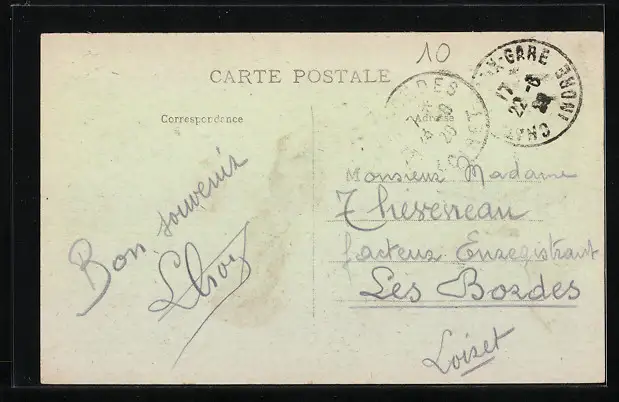 10
CARTE POSTALE
Correspondance
Adresse
Bon souvenir
Monsieur Madame
Thévéneau
facteur Enregistrant
Les Bordes
Loiret